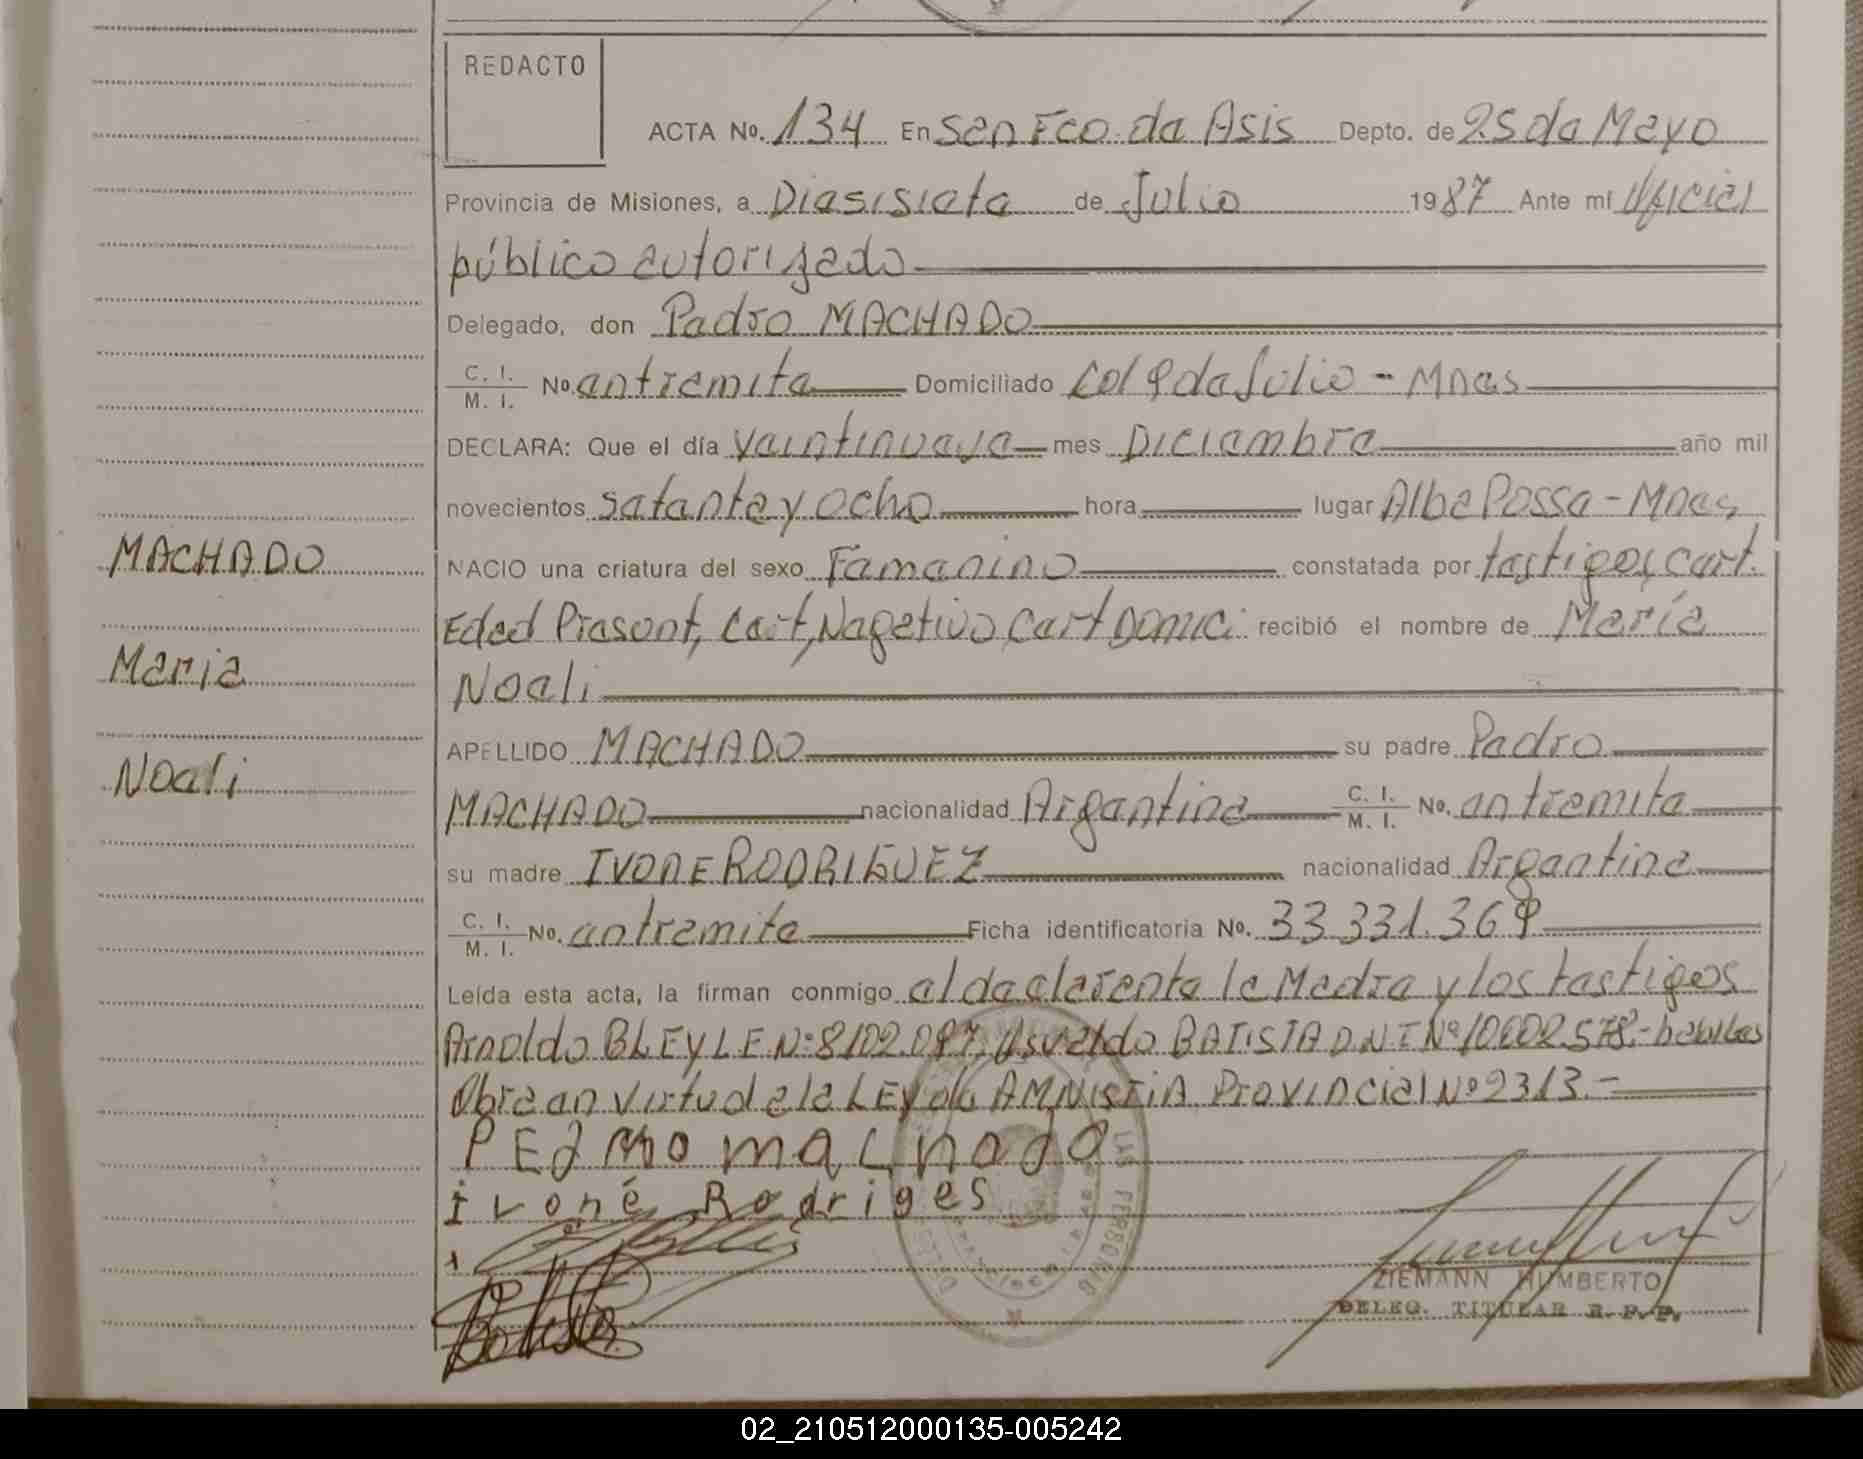 REDACTO
ACTA No. 134 En San Fco. de Asis Depto. de 25 de Mayo
Provincia de Misiones, a Diesisiete de Julio 1987 Ante mí Oficial
público autorizado
Delegado, don Pedro MACHADO
C. I.
M. I. No. en tramite Domiciliado Col 9 de Julio - Mnes
DECLARA: Que el día Veintinueve mes Diciembre año mil
novecientos setenta y ocho hora lugar Alba Possa - Mnes
NACIO una criatura del sexo Femenino constatada por testigos, cert.
Edad Presont, Cert, Negativo, Cert Domici recibió el nombre de María
Noeli
APELLIDO MACHADO su padre Pedro
MACHADO nacionalidad Argentina C. I.
M. I. No. en tramita
su madre IVONE RODRIGUEZ nacionalidad Argentina
C. I.
M. I. No. en tramite Ficha identificatoria No. 33 331.369
Leída esta acta, la firman conmigo el declarente la Madre y los testigos
Arnoldo BLEYLE Nº 8102.097, Osvaldo BATISTA DNI Nº 10602.578.- habilas
Obra en virtud a la LEY de AMNISTIA Provincial Nº 2313.-
PEdRo machado
ivoné Rodriges
ZIEMANN HUMBERTO
DELEG. TITULAR R. P. P.
MACHADO
Maria
Noeli
02_210512000135-005242